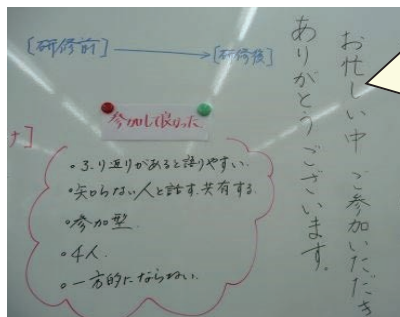 お忙しい中 ご参加いただき
ありがとうございます。
[研修前]
[研修後]
参加して良かった
・ふり返りがあると語りやすい。
・知らない人と話す、共有する。
・参加型
・4人
・一方的にならない